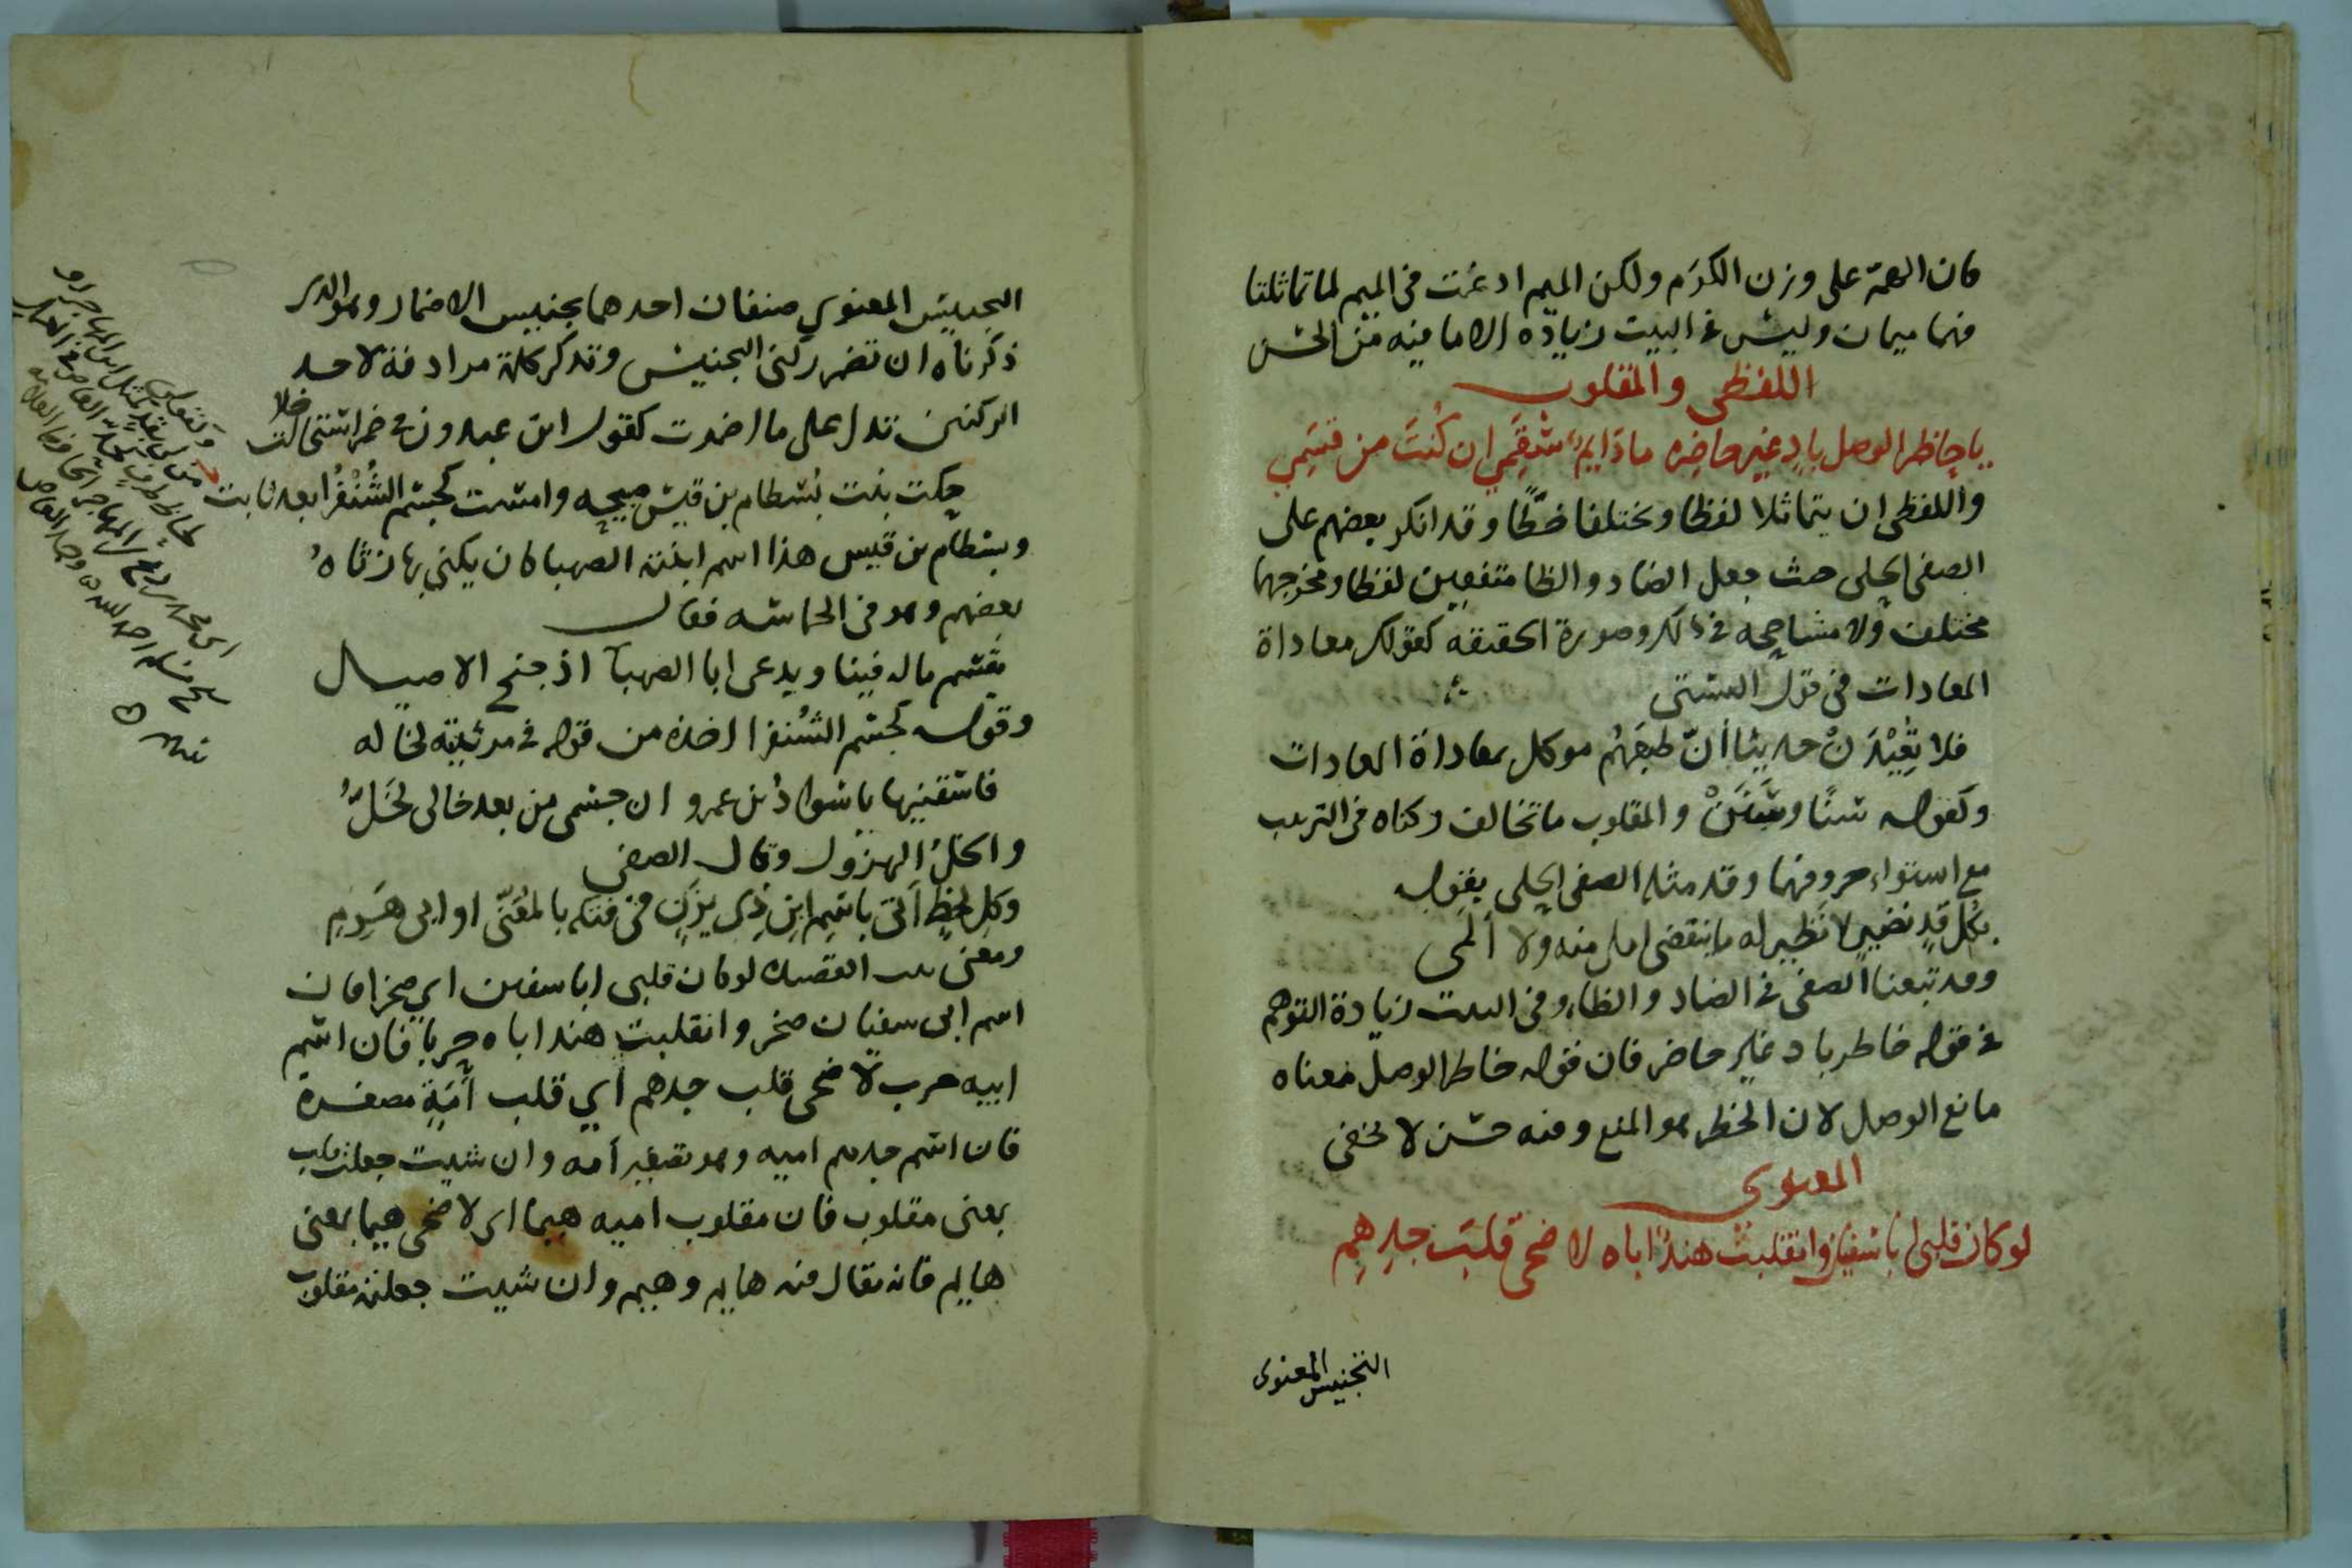 كان العمّ على وزن الكرَم ولكن الميم ادغمت في الميم لما تماثلتا
فهما ميمان وليس في البيت زيادة الا ما فيه من الحسن
اللفظي والمقلوب
يا حاظر الوصل بادٍ غير حاضره ماذا يم سَقَمي ان كُنتَ من قِسَمِي
واللفظي ان يتماثلا لفظا ويختلفا خطًّا وقد انكر بعضهم على
الصفي الحلي حيث جعل الضاد والظا متفقين لفظا ومخرجهما
مختلف ولا مشاححه في ذلك وصورة الحقيقه كقولك معاداة
المعادات في قول البستي
فلا تُعِيْدَنْ حديثا أنّ طبعَهُم موكل بمعاداة المعادات
وكقوله شنًا وشَنَنْ والمقلوب ما تخالف ركناه في الترتيب
مع استواء حروفهما وقد مثله الصفي الحلي بقوله
بكل قدٍ نضيرٍ لا نظير له ما ينقضي املي منه ولا ألمي
وقد تبعنا الصفي في الضاد والظاء وفي البيت زيادة التوهم
في قوله خاطر باد غير حاضر فان قوله حاظر الوصل معناه
مانع الوصل لان الحظر هو المنع وفيه حسن لا يخفى
المعنوي
لو كان قلبي ابا سفيان وانقلبت هندٌ اباه لاضحى قلبَ جدِهِمِ
التجنيس المعنوي
التجنيس المعنوي صنفان احدهما تجنيس الاضمار وهو الذي
ذكرناه ان تضمر ركني التجنيس وتذكر كلمة مرادفة لاحد
الركنين تدل على ما اضمرت كقول ابن عبدون في خمر استحالت خلا
حكت بنت بسطام بن قيس صبيحه وامست كجسم الشُنْفُرا بعد ثابت
وبسطام بن قيس هذا اسم ابنته الصهبا كان يكنى بها رثاهُ
بعضهم وهو في الحماسه فقال
نقسم ماله فينا ويدعى ابا الصهبآ اذ جنح الاصيل
وقوله كجسم الشُنفرا اخذه من قوله في مرثيته لخاله
فاسقنيها يا سوادُ بن عمرو ان جسمي من بعد خالي لخَلُّ
والخلُ المهزول وقال الصفي
وكل لحظٍ اَتى باسمِ ابنِ ذي يزَنٍ في فتكه بالمُعَنّى او ابي هَرِمِ
ومعنى بيت القصيده لو كان قلبي ابا سفين اي صخرا فان
اسم ابي سفيان صخر وانقلبت هند اباه حربا فان اسم
ابيه حرب لاضحى قلب جدهم أي قلب أُمَيَّةَ مصغرة
فان اسم جدهم اميه وهو تصغير أمه وان شيت جعلت قلب
بمعنى مقلوب فان مقلوب اميه هيما اي لاضحى هيما بمعنى
هايم فانه يقال فيه هايم وهيم وان شيت جعلته مقلوب